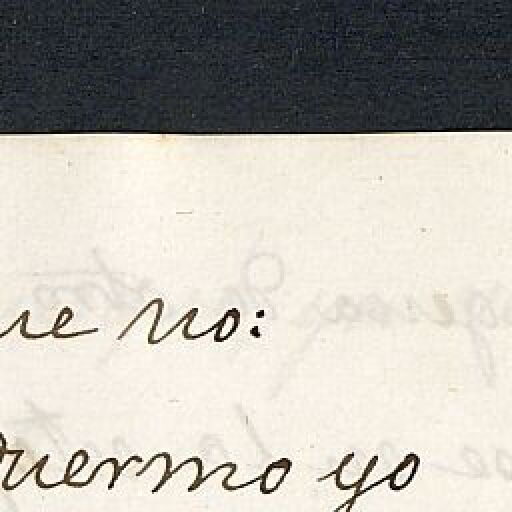 ue no:
duermo yo